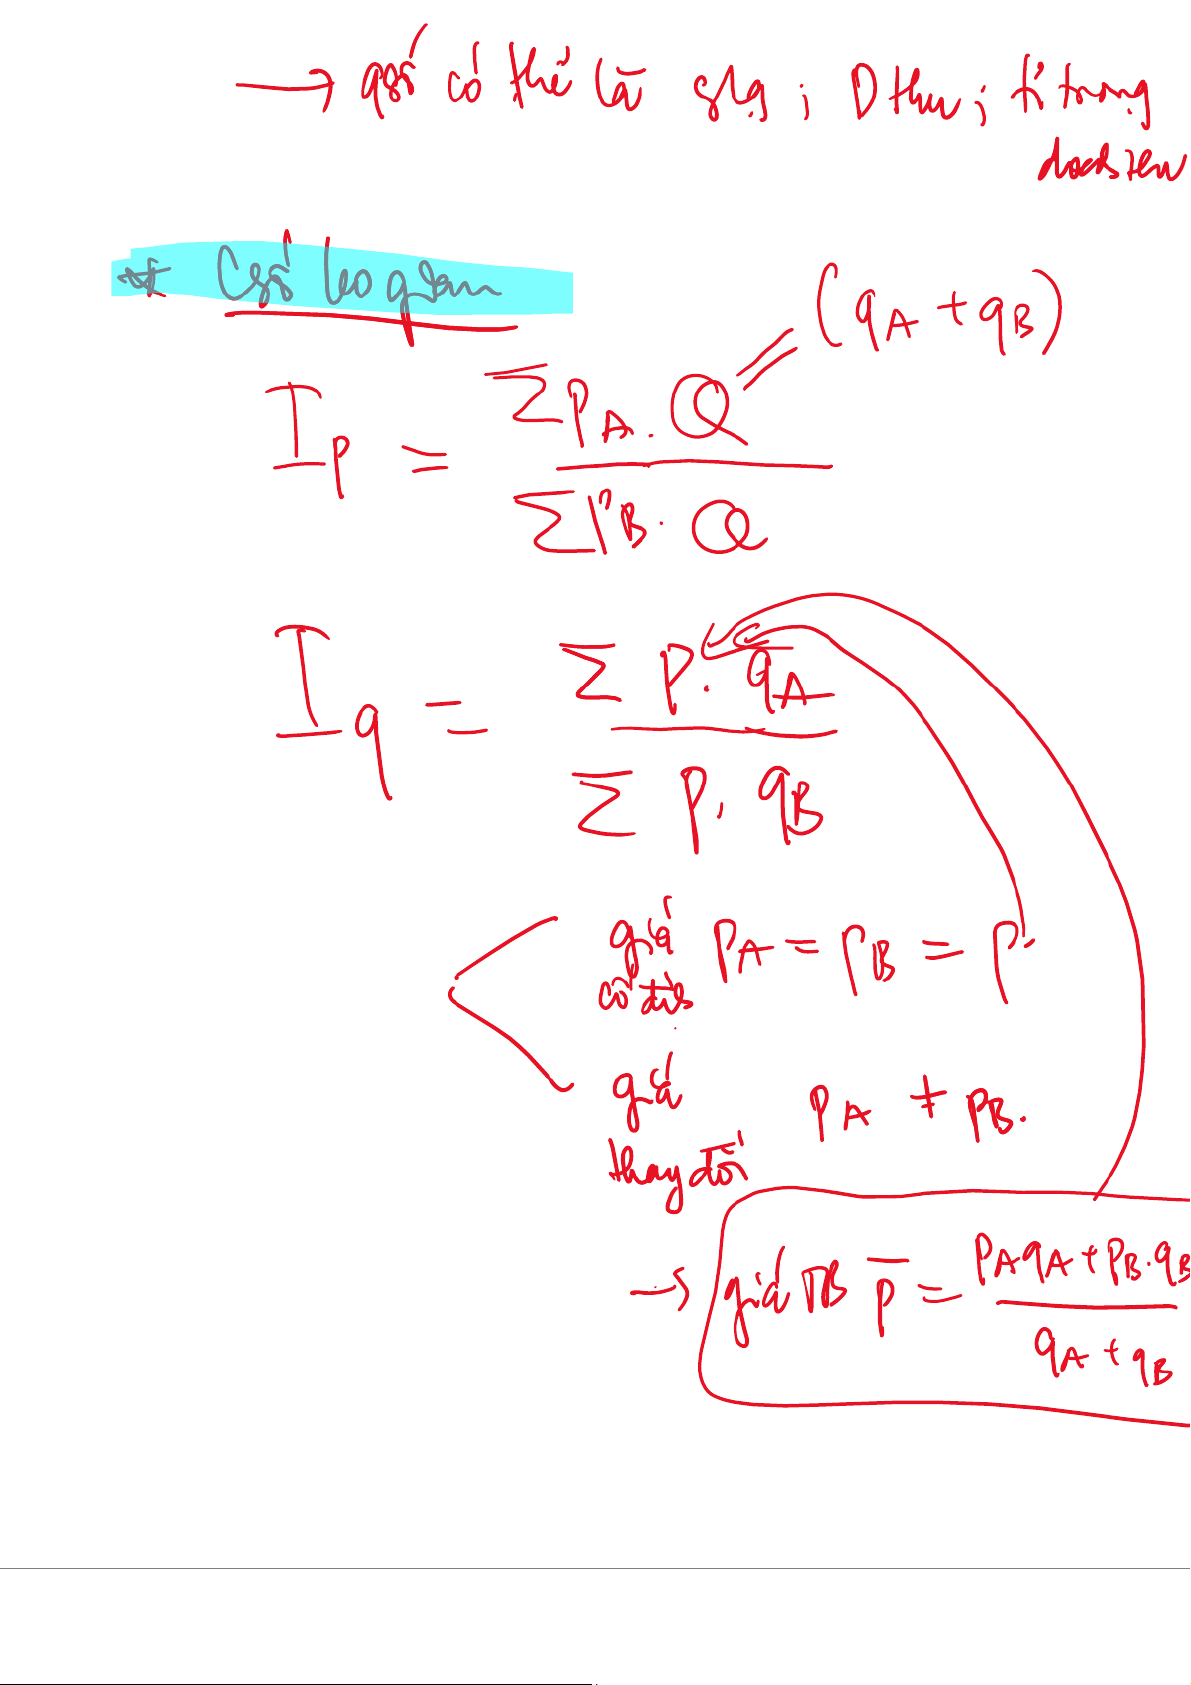 → qsố có thể là slg ; Dthu ; tỉ trọng
* Csố ko gian
(qA + qB)
Ip = ΣpA . Q / ΣpB . Q
Iq = Σ p . qA / Σ p . qB
giá cố định pA = pB = p
giá thay đổi pA ≠ pB.
→ giá TB p̄ = pA qA + pB . qB / qA + qB